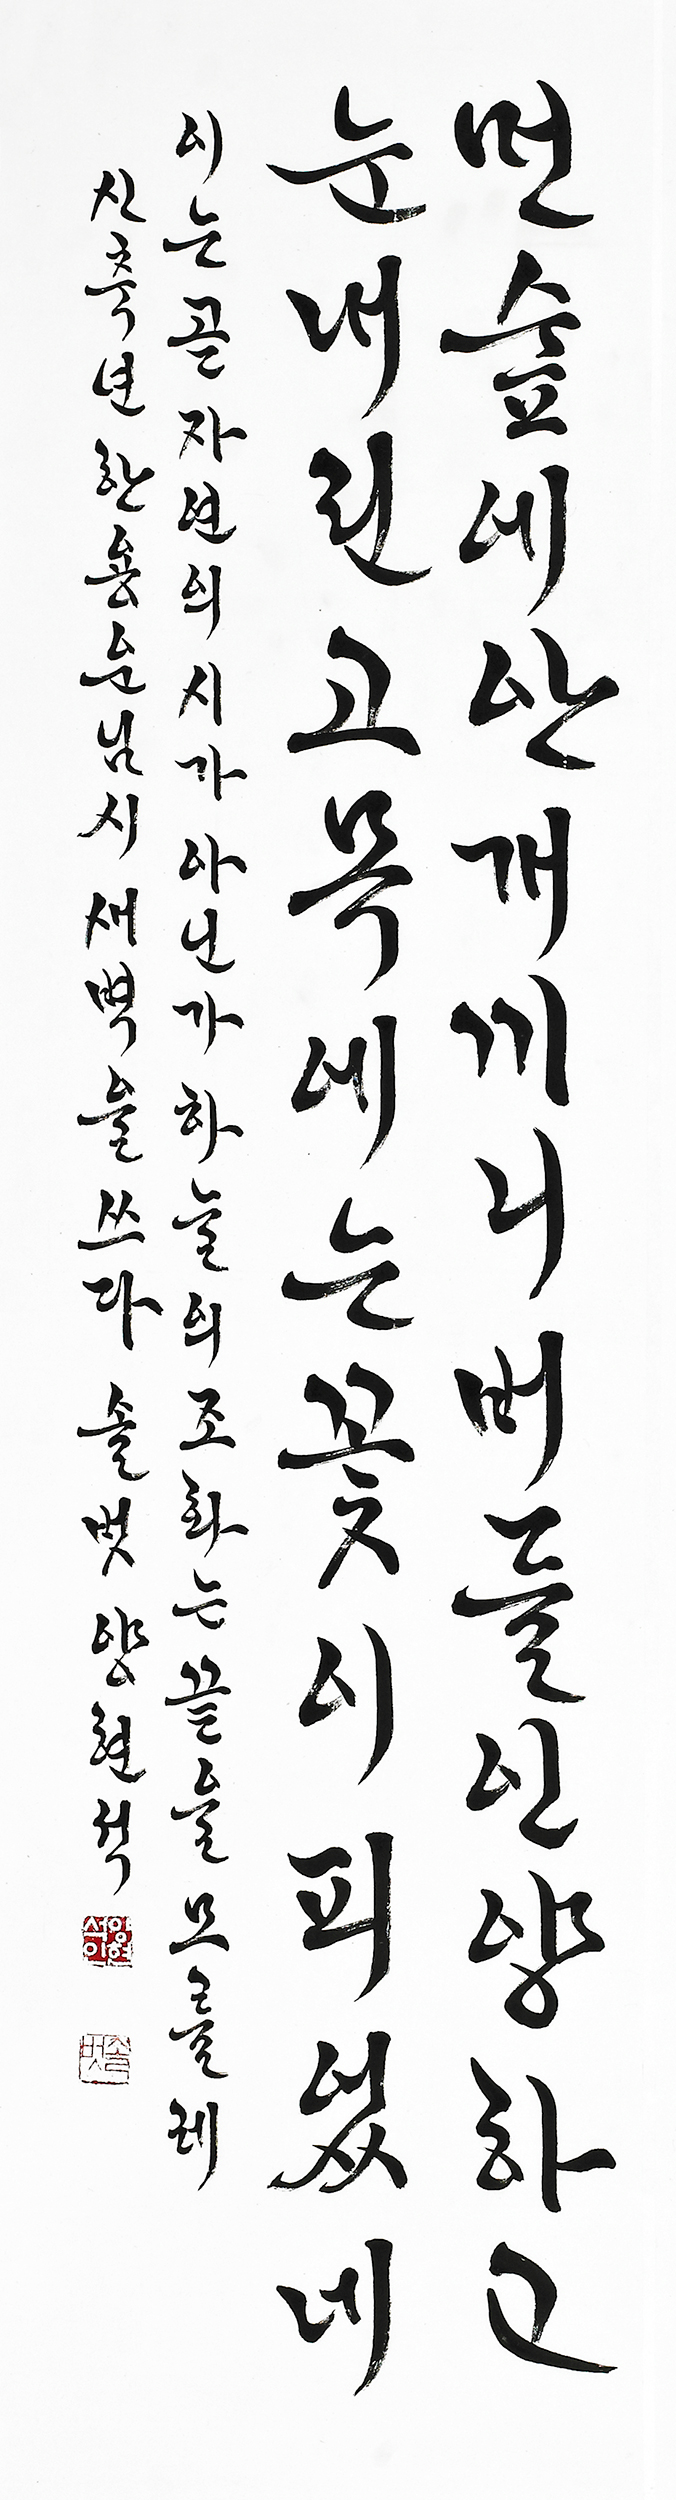 먼숲에안개끼니버들인양하고
눈내린고목에는꽃이피었네
시는곧자연의시가아닌가하늘의조화는끝을모를레
신축년한용운님시새벽을쓰다 솔벗 양현석
양현석인
솔벗